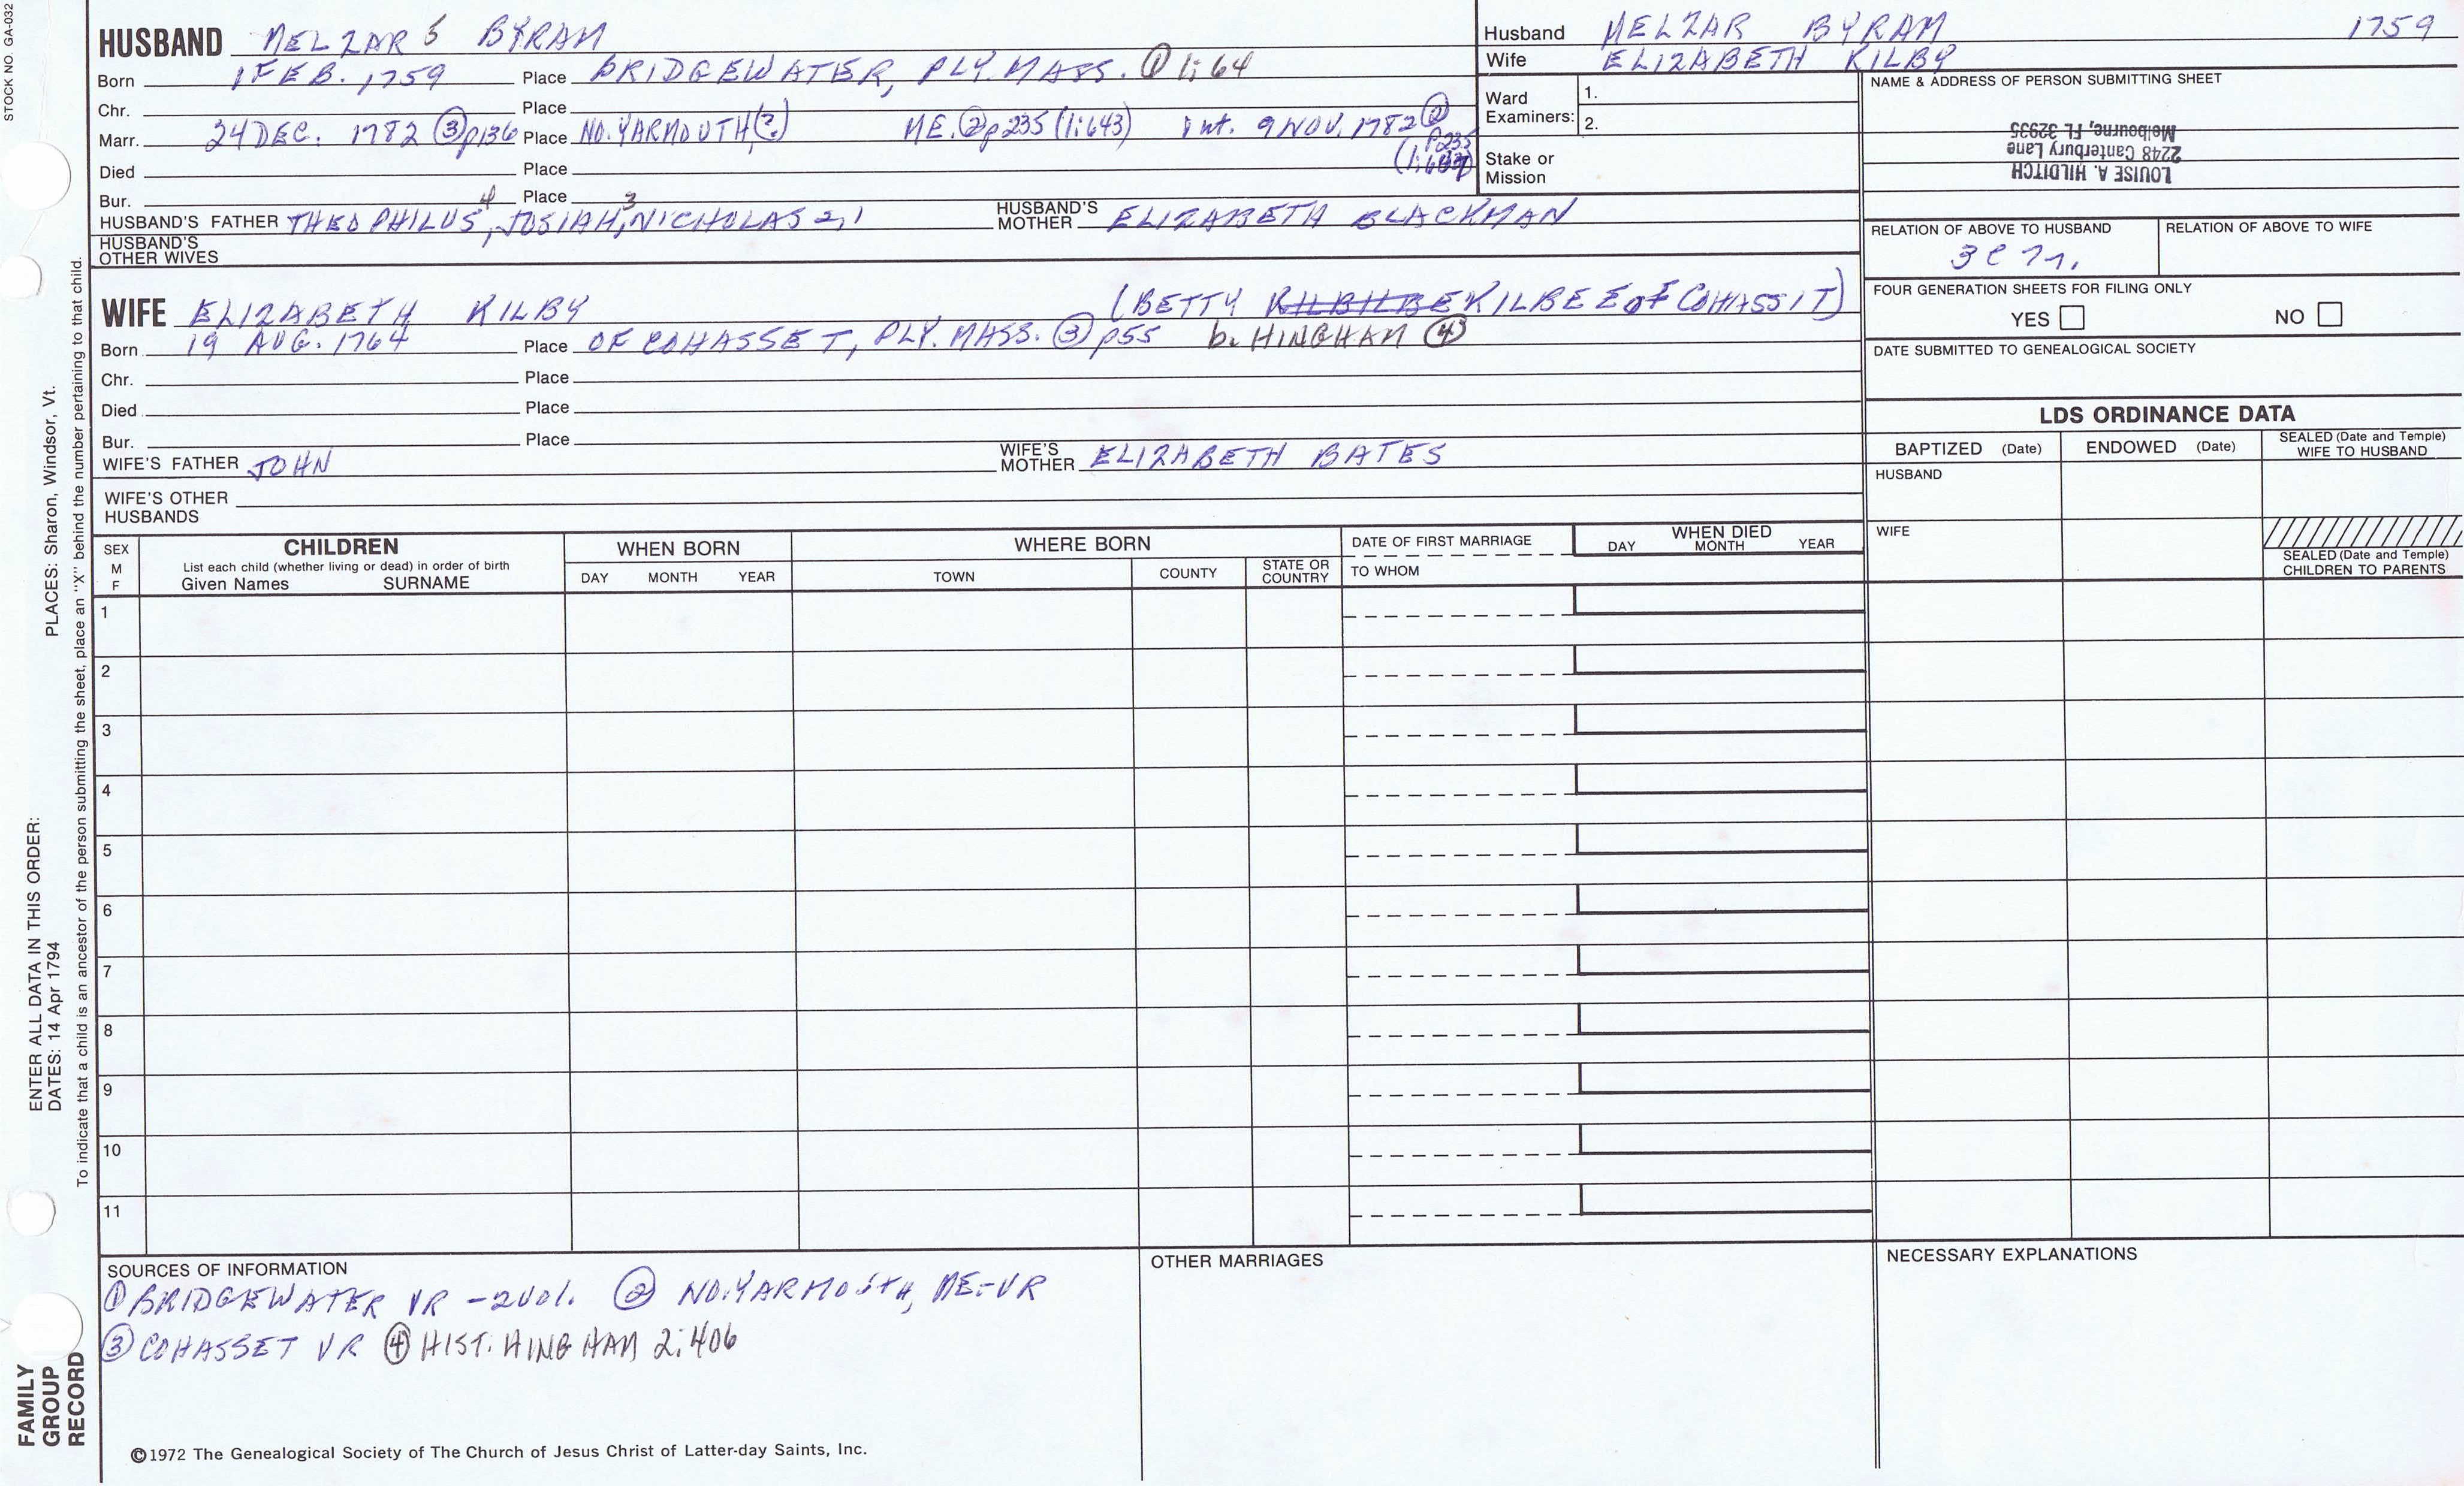 STOCK NO. GA-032
HUSBAND MELZAR 5 BYRAM
Born 1 FEB. 1759 Place BRIDGEWATER, PLY. MASS. ① 1:64
Chr. Place
Marr. 24 DEC. 1782 ③ p136 Place NO. YARMOUTH(?) ME. ② p235 (1:643) Int. 9 NOV. 1782 ②
p235
Died Place
Bur. Place
HUSBAND'S FATHER THEOPHILUS 4, JOSIAH 3, NICHOLAS 2, 1 HUSBAND'S MOTHER ELIZABETH BLACKMAN
HUSBAND'S OTHER WIVES
Husband MELZAR BYRAM 1759
Wife ELIZABETH KILBY
Ward Examiners: 1.
2.
Stake or Mission
NAME & ADDRESS OF PERSON SUBMITTING SHEET
LOUISE A. HILDITCH
2248 Canterbury Lane
Melbourne, FL 32935
RELATION OF ABOVE TO HUSBAND
RELATION OF ABOVE TO WIFE
FOUR GENERATION SHEETS FOR FILING ONLY
YES NO
DATE SUBMITTED TO GENEALOGICAL SOCIETY
WIFE ELIZABETH KILBY (BETTY KILBEE of COHASSIT)
Born 19 AUG. 1764 Place OF COHASSET, PLY. MASS. ③ p55 b. HINGHAM ④
Chr. Place
Died Place
Bur. Place
WIFE'S FATHER JOHN WIFE'S MOTHER ELIZABETH BATES
WIFE'S OTHER HUSBANDS
LDS ORDINANCE DATA
BAPTIZED (Date) ENDOWED (Date) SEALED (Date and Temple) WIFE TO HUSBAND
HUSBAND
WIFE
SEALED (Date and Temple) CHILDREN TO PARENTS
SEX M F
CHILDREN
List each child (whether living or dead) in order of birth
Given Names SURNAME
WHEN BORN
DAY MONTH YEAR
WHERE BORN
TOWN COUNTY STATE OR COUNTRY
DATE OF FIRST MARRIAGE
TO WHOM
WHEN DIED
DAY MONTH YEAR
1
2
3
4
5
6
7
8
9
10
11
SOURCES OF INFORMATION
① BRIDGEWATER VR - 2 Vol. ② NO. YARMOUTH, ME - VR
③ COHASSET VR ④ HIST. HINGHAM 2:406
OTHER MARRIAGES
NECESSARY EXPLANATIONS
©1972 The Genealogical Society of The Church of Jesus Christ of Latter-day Saints, Inc.
FAMILY
GROUP
RECORD
ENTER ALL DATA IN THIS ORDER:
DATES: 14 Apr 1794 PLACES: Sharon, Windsor, Vt.
To indicate that a child is an ancestor of the person submitting the sheet, place an "X" behind the number pertaining to that child.